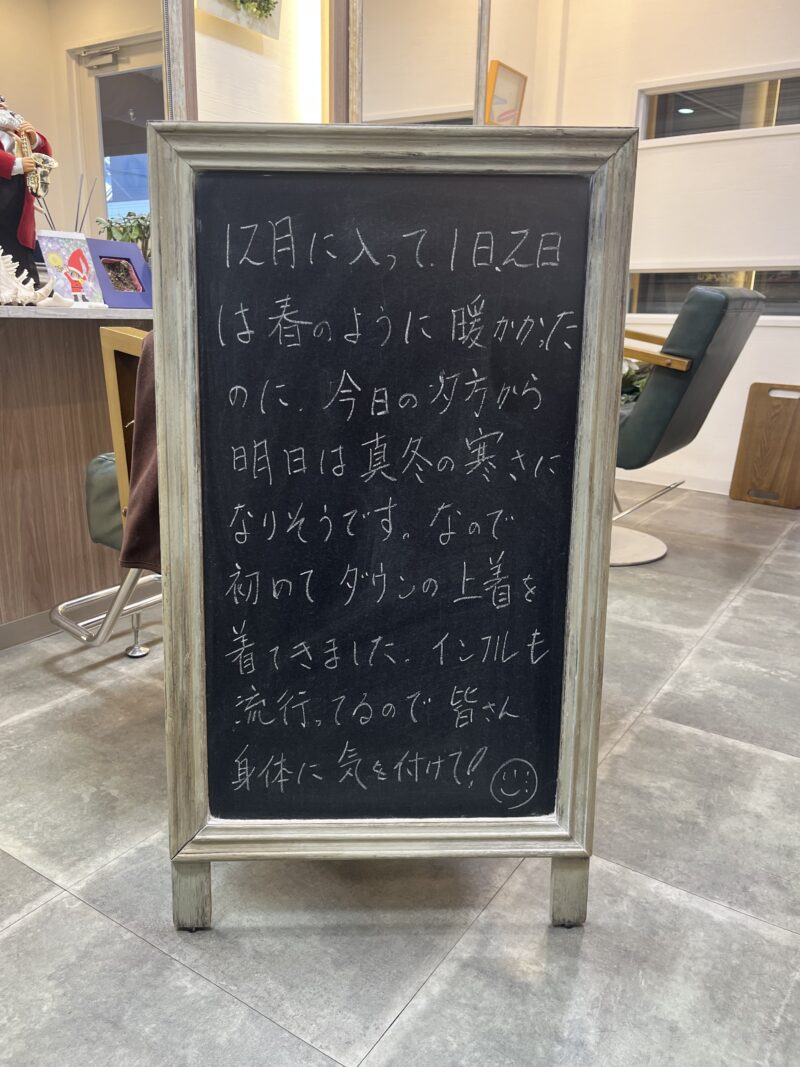 12月に入って、1日、2日
は春のように暖かかった
のに、今日の夕方から
明日は真冬の寒さに
なりそうです。なので
初めてダウンの上着を
着てきました。インフルも
流行ってるので皆さん
身体に気を付けて!!